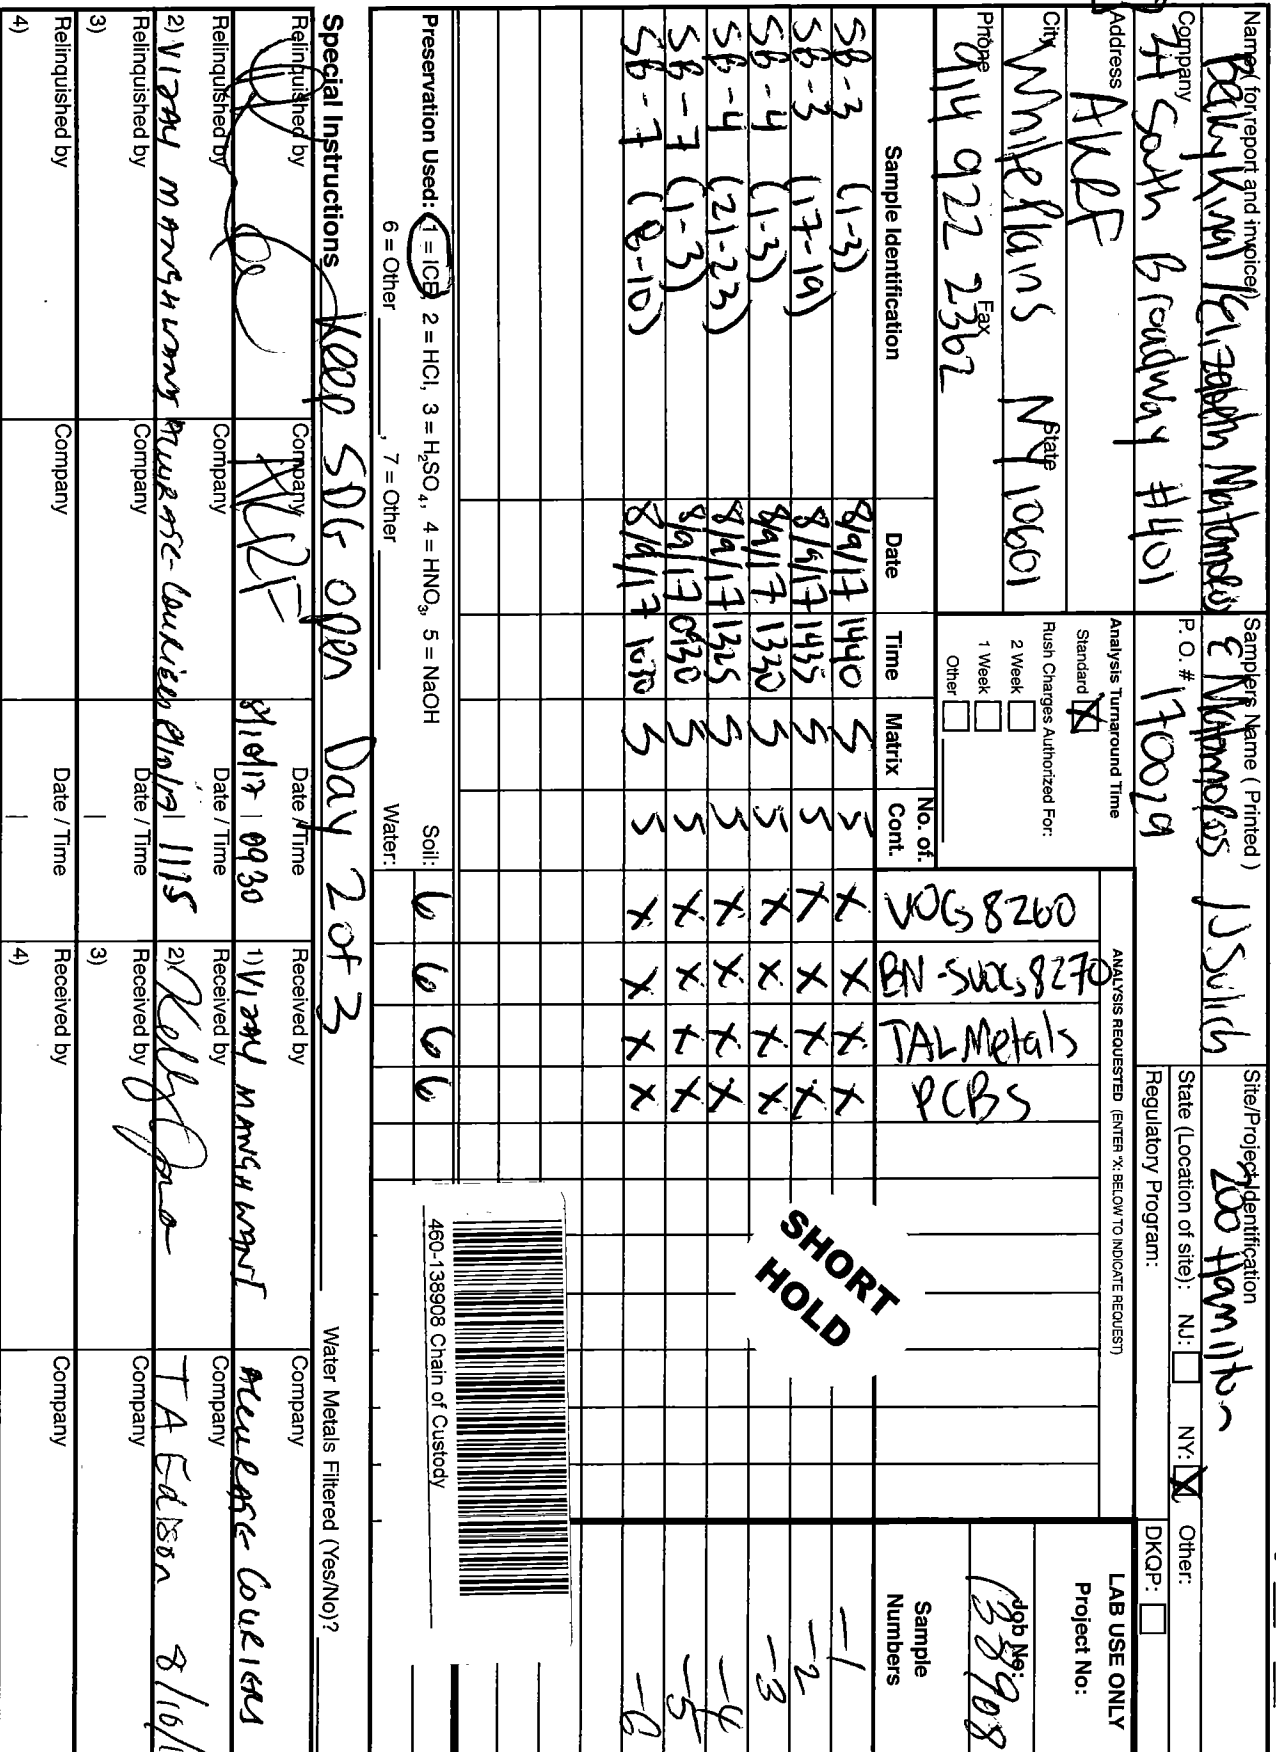 Name ( for report and invoice) Becky Kinal / Elizabeth Matamoros
Samplers Name ( Printed ) E Matamoros / J Sulich
Site/Project Identification 200 Hamilton
Company
34 South Broadway #401
P. O. # 170029
State (Location of site): NJ: NY: X Other:
Regulatory Program: DKQP:
Address AKRF
Analysis Turnaround Time
Standard X
Rush Charges Authorized For:
2 Week
1 Week
Other
ANALYSIS REQUESTED (ENTER "X: BELOW TO INDICATE REQUEST)
LAB USE ONLY
Project No:
City White Plains State NY 10601
Job No: 138908
Phone 914 922 2362 Fax
Sample Identification Date Time Matrix No. of. Cont. VOCs 8260 BN-SVOCs 8270 TAL Metals PCBs Sample Numbers
SB-3 (1-3) 8/9/17 1440 S 5 X X X X -1
SB-3 (17-19) 8/9/17 1435 S 5 X X X X -2
SB-4 (1-3) 8/9/17 1330 S 5 X X X X -3
SB-4 (21-23) 8/9/17 1325 S 5 X X X X -4
SB-7 (1-3) 8/9/17 0930 S 5 X X X X -5
SB-7 (8-10) 8/9/17 1030 S 5 X X X X -6
SHORT
HOLD
460-138908 Chain of Custody
Preservation Used: 1 = ICE, 2 = HCl, 3 = H₂SO₄, 4 = HNO₃, 5 = NaOH Soil: 6 6 6 6
6 = Other , 7 = Other Water:
Special Instructions Keep SDG open Day 2 of 3
Water Metals Filtered (Yes/No)?
Relinquished by Company AKRF Date / Time 8/10/17 | 0930 Received by 1) VIJAY MANGHWANI Company ACCURATE COURIERS
Relinquished by 2) VIJAY MANGHWANI Company ACCURATE COURIERS Date / Time 8/10/17 | 1115 Received by 2) Company TA Edison 8/10/1
Relinquished by 3) Company Date / Time | Received by 3) Company
Relinquished by 4) Company Date / Time | Received by 4) Company